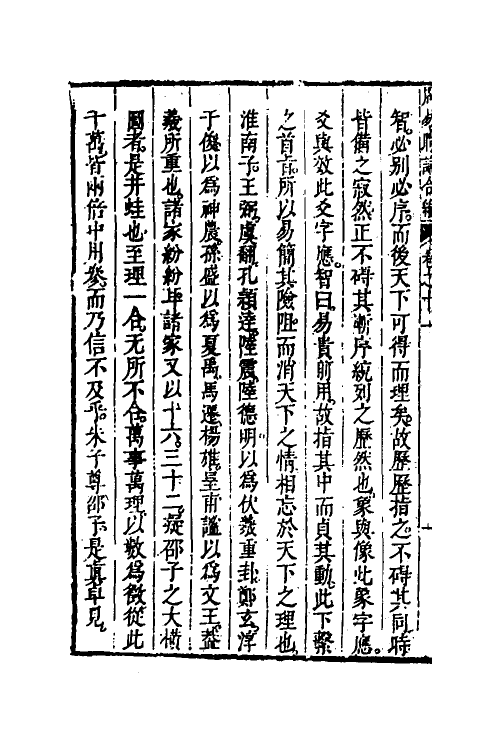 周易時論合編
智必別必序而後天下可得而理矣故歷歷指之不碍其同時
皆備之寂然正不碍其漸序統列之歷然也象與像此象字應
爻與效此爻字應智曰易貴前用故指其中而貞其動此下繫
之首言所以易簡其險阻而消天下之情相忘於天下之理也
淮南子王弼虞翻孔穎達陸震陸德明以為伏羲重卦鄭玄淳
于俊以為神農孫盛以為夏禹馬遷楊雄皇甫謐以為文王蓋
羲所重也諸家紛紛毕諸家又以十六三十二疑邵子之大橫
圖者是井蛙也至理一合无所不合萬事萬理以數為徵從此
千萬皆兩倍中用參而乃信不及乎朱子尊邵子是眞卓見